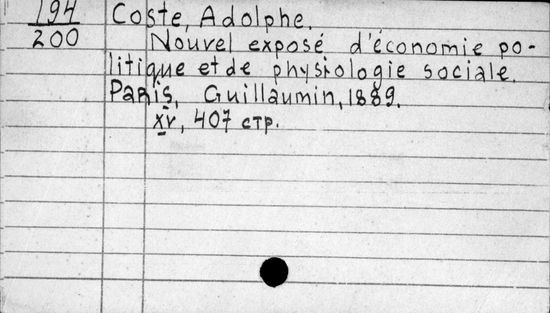 194 Coste, Adolphe.
200 Nouvel exposé d'économie po-
litique et de physiologie sociale.
Paris, Guillaumin, 1889.
xv, 407 стр.